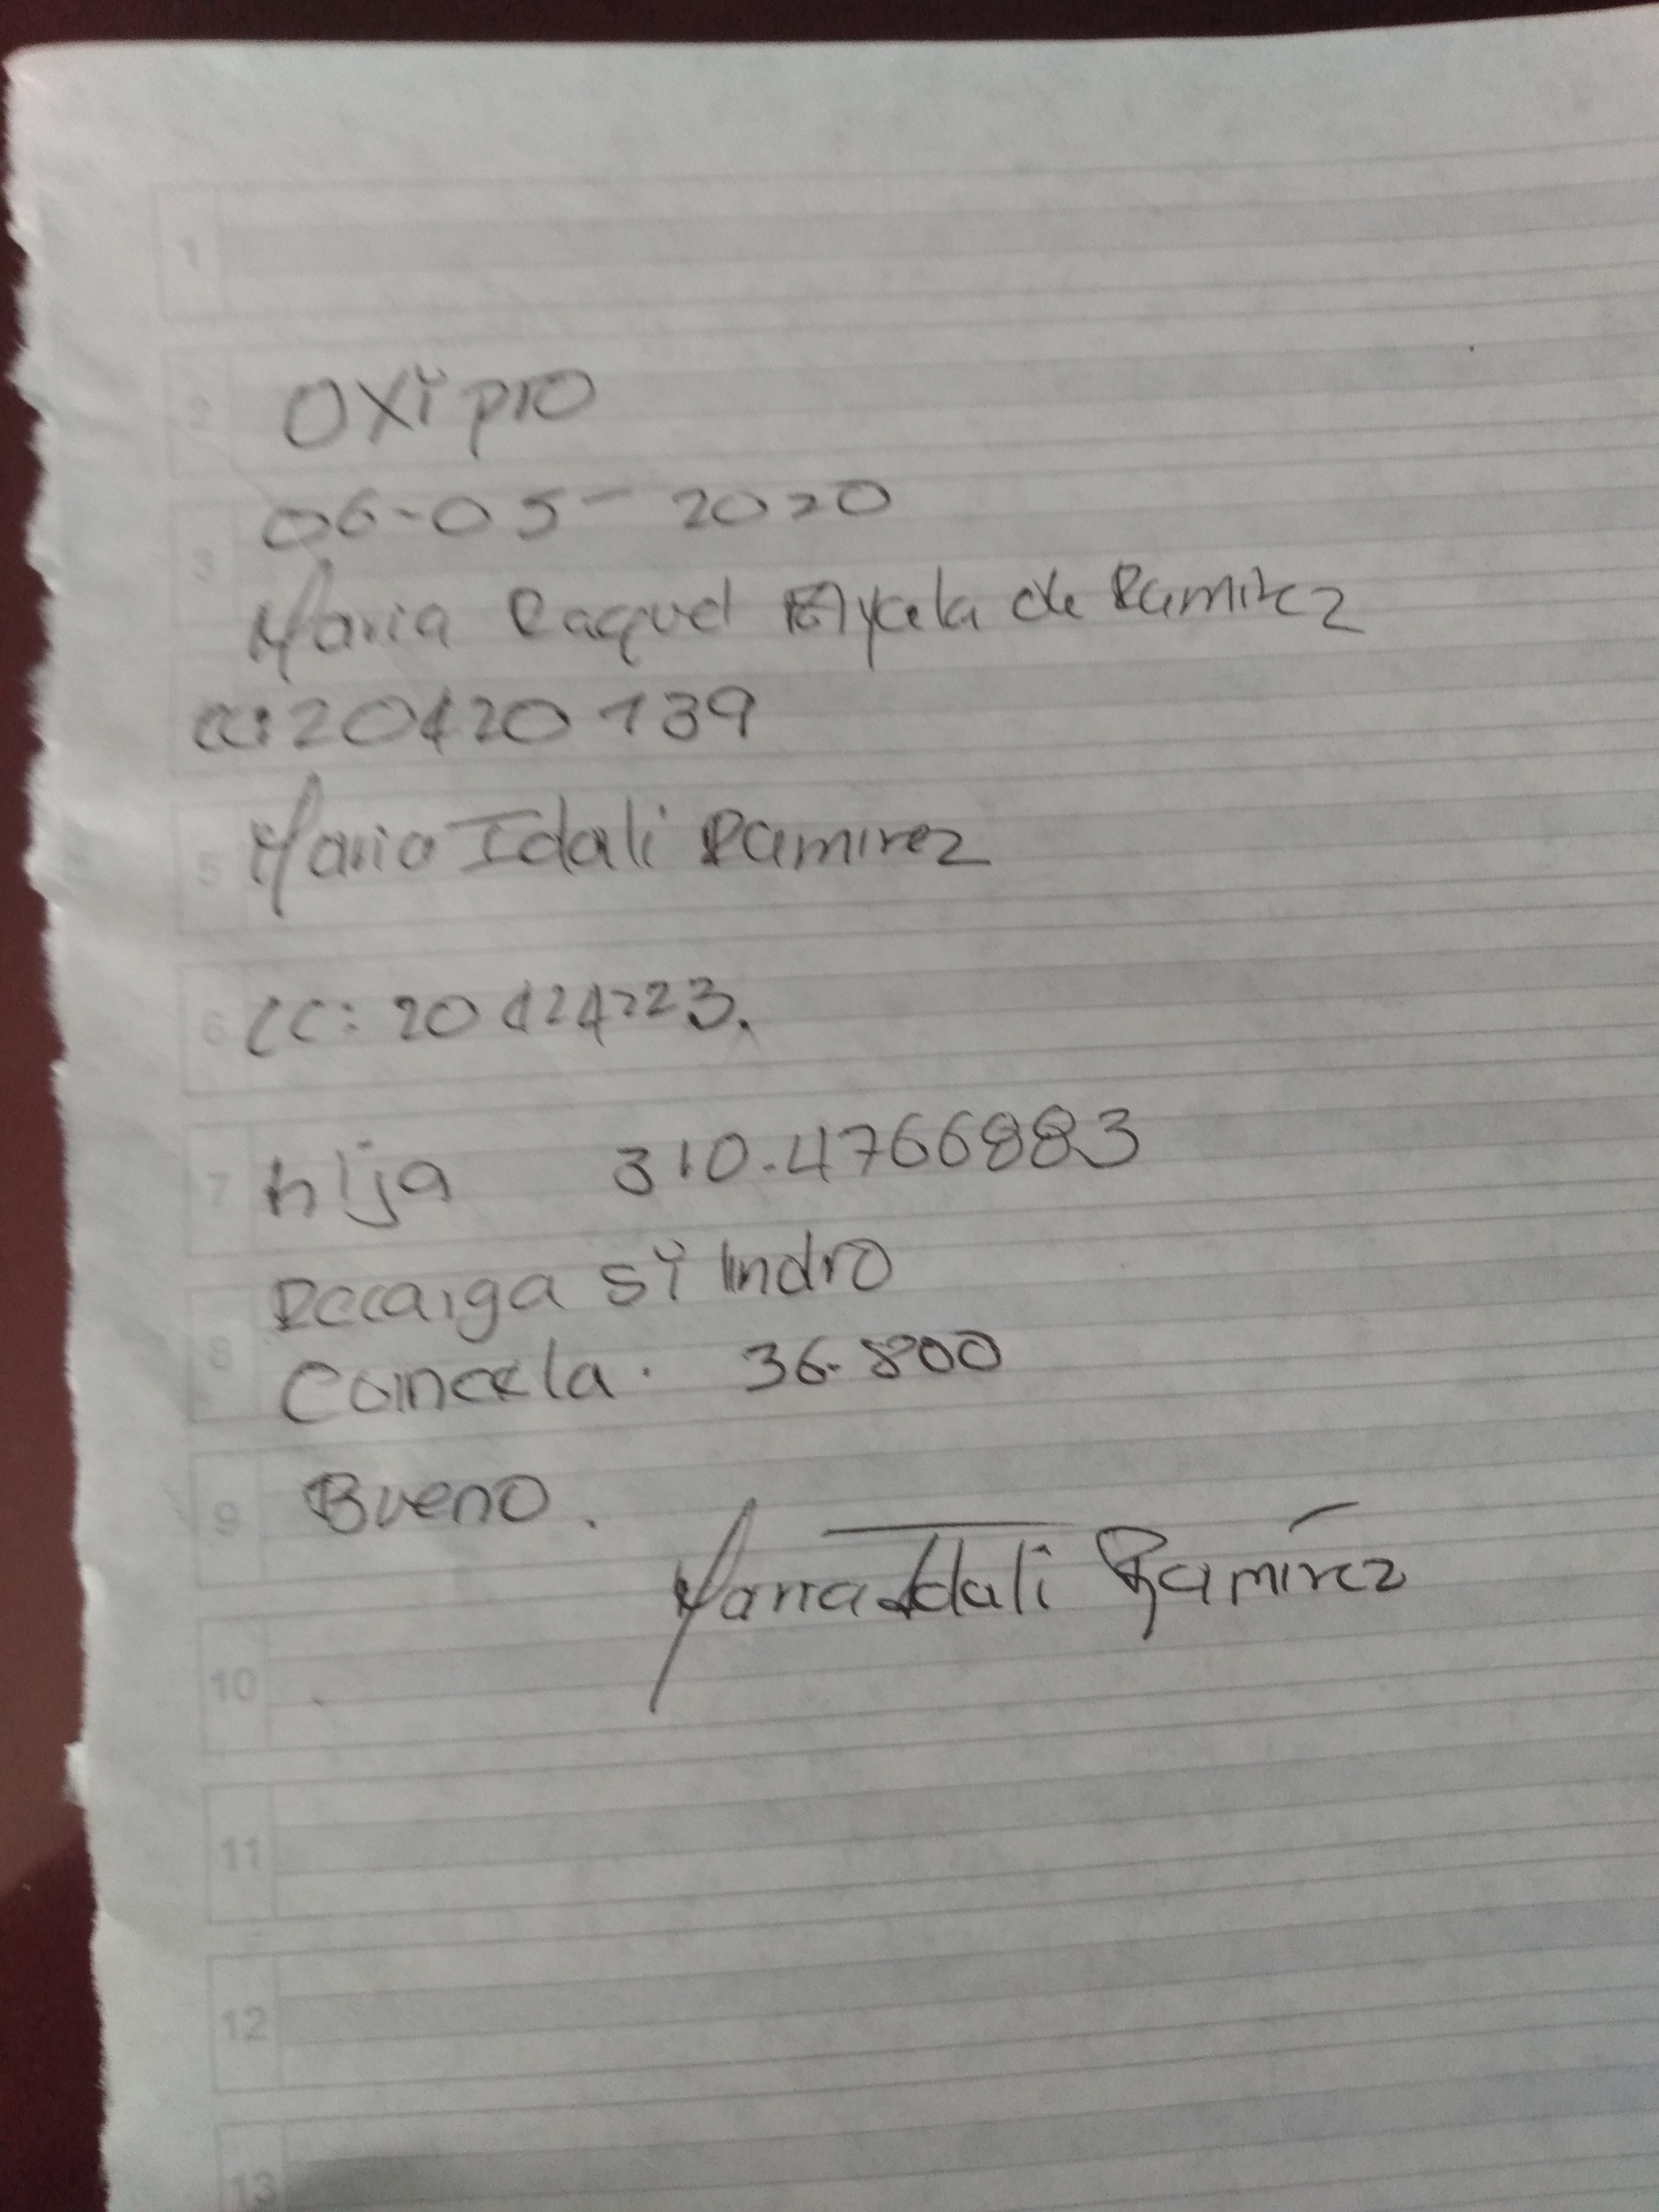 1
2 OXi pro
06-05-2020
3
Maria Raquel Ayala de Ramirez
CC: 20420139
5 Maria Idali Ramirez
6 CC: 20424223.
7 hija 310.4766883
Recarga si lindro
8
Cancela. 36.800
9 Bueno.
Maria Idali Ramírez
10
11
12
13